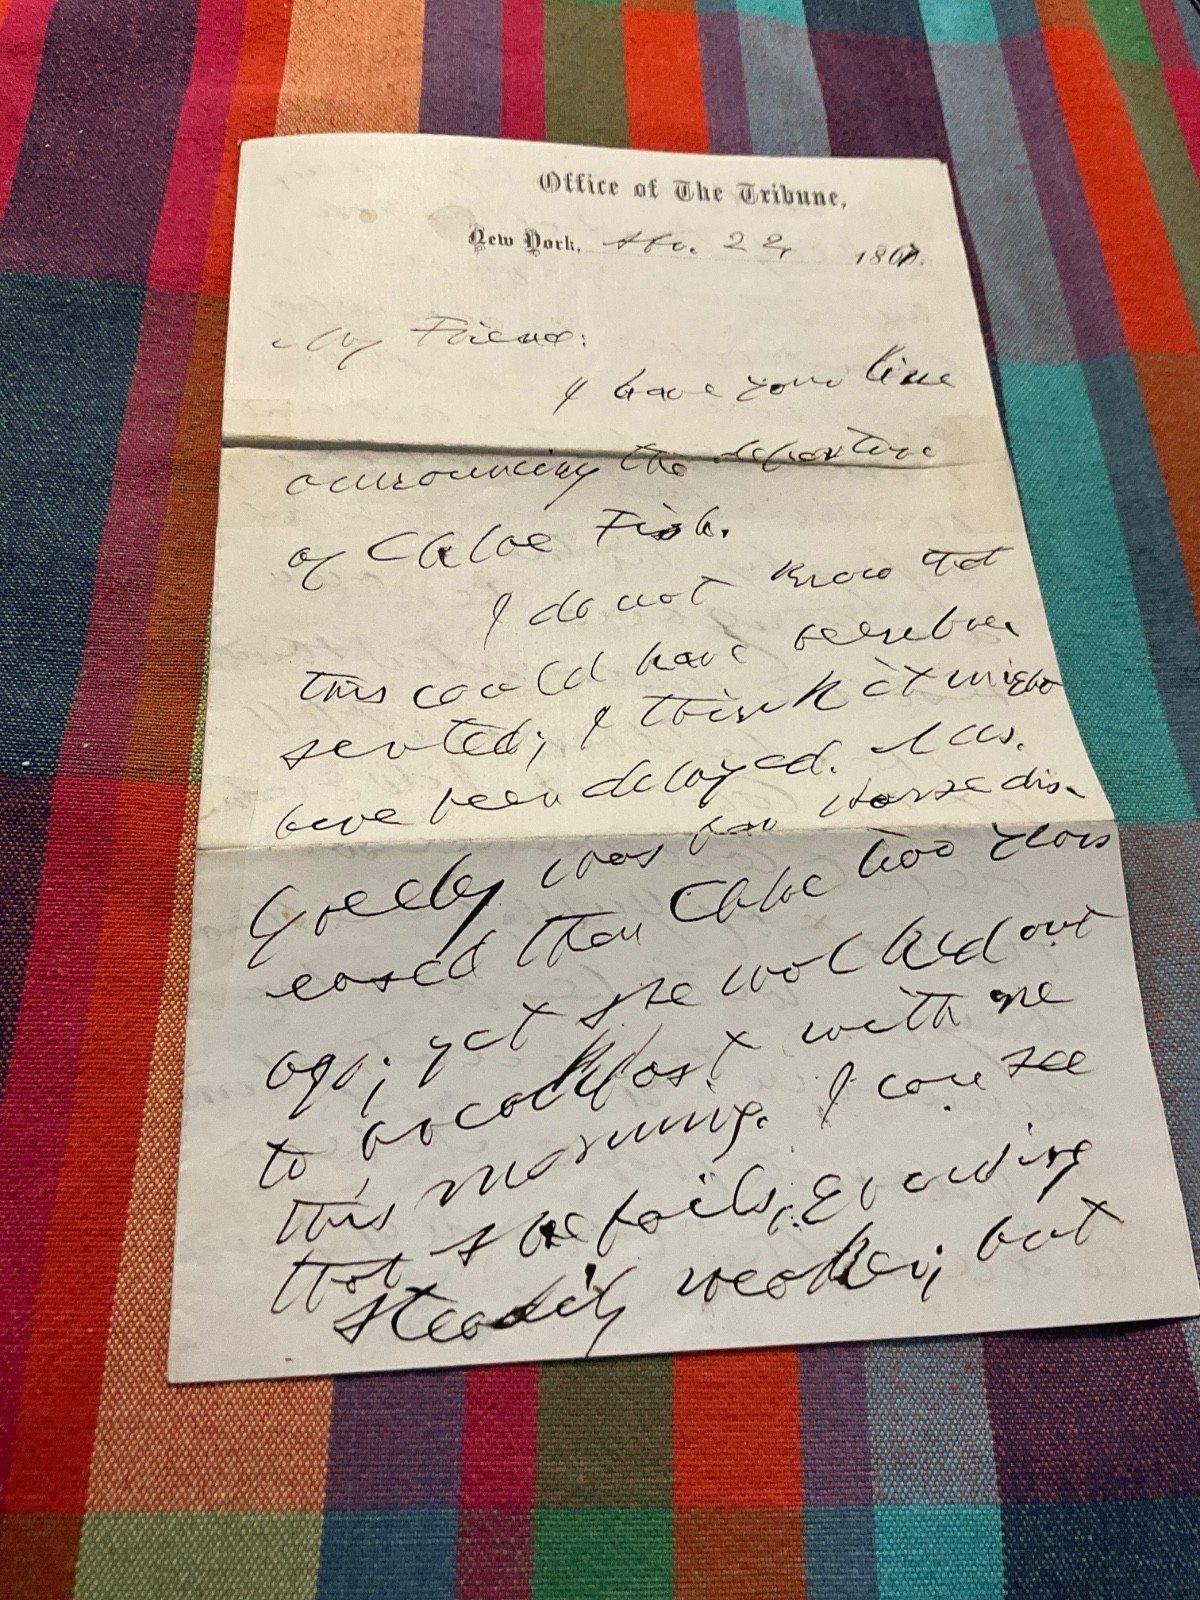 Office of The Tribune,
New York, 22, 186
My Friend:
I have your line
announcing the departure
of Chloe Fish.
I do not know that
this could have been
; I think it might
have been delayed. Mrs.
Greeley was far worse dis-
eased than Chloe two years
ago; yet she walked out
to breakfast with me
this morning. I can see
that she fails, growing
steadily weaker; but